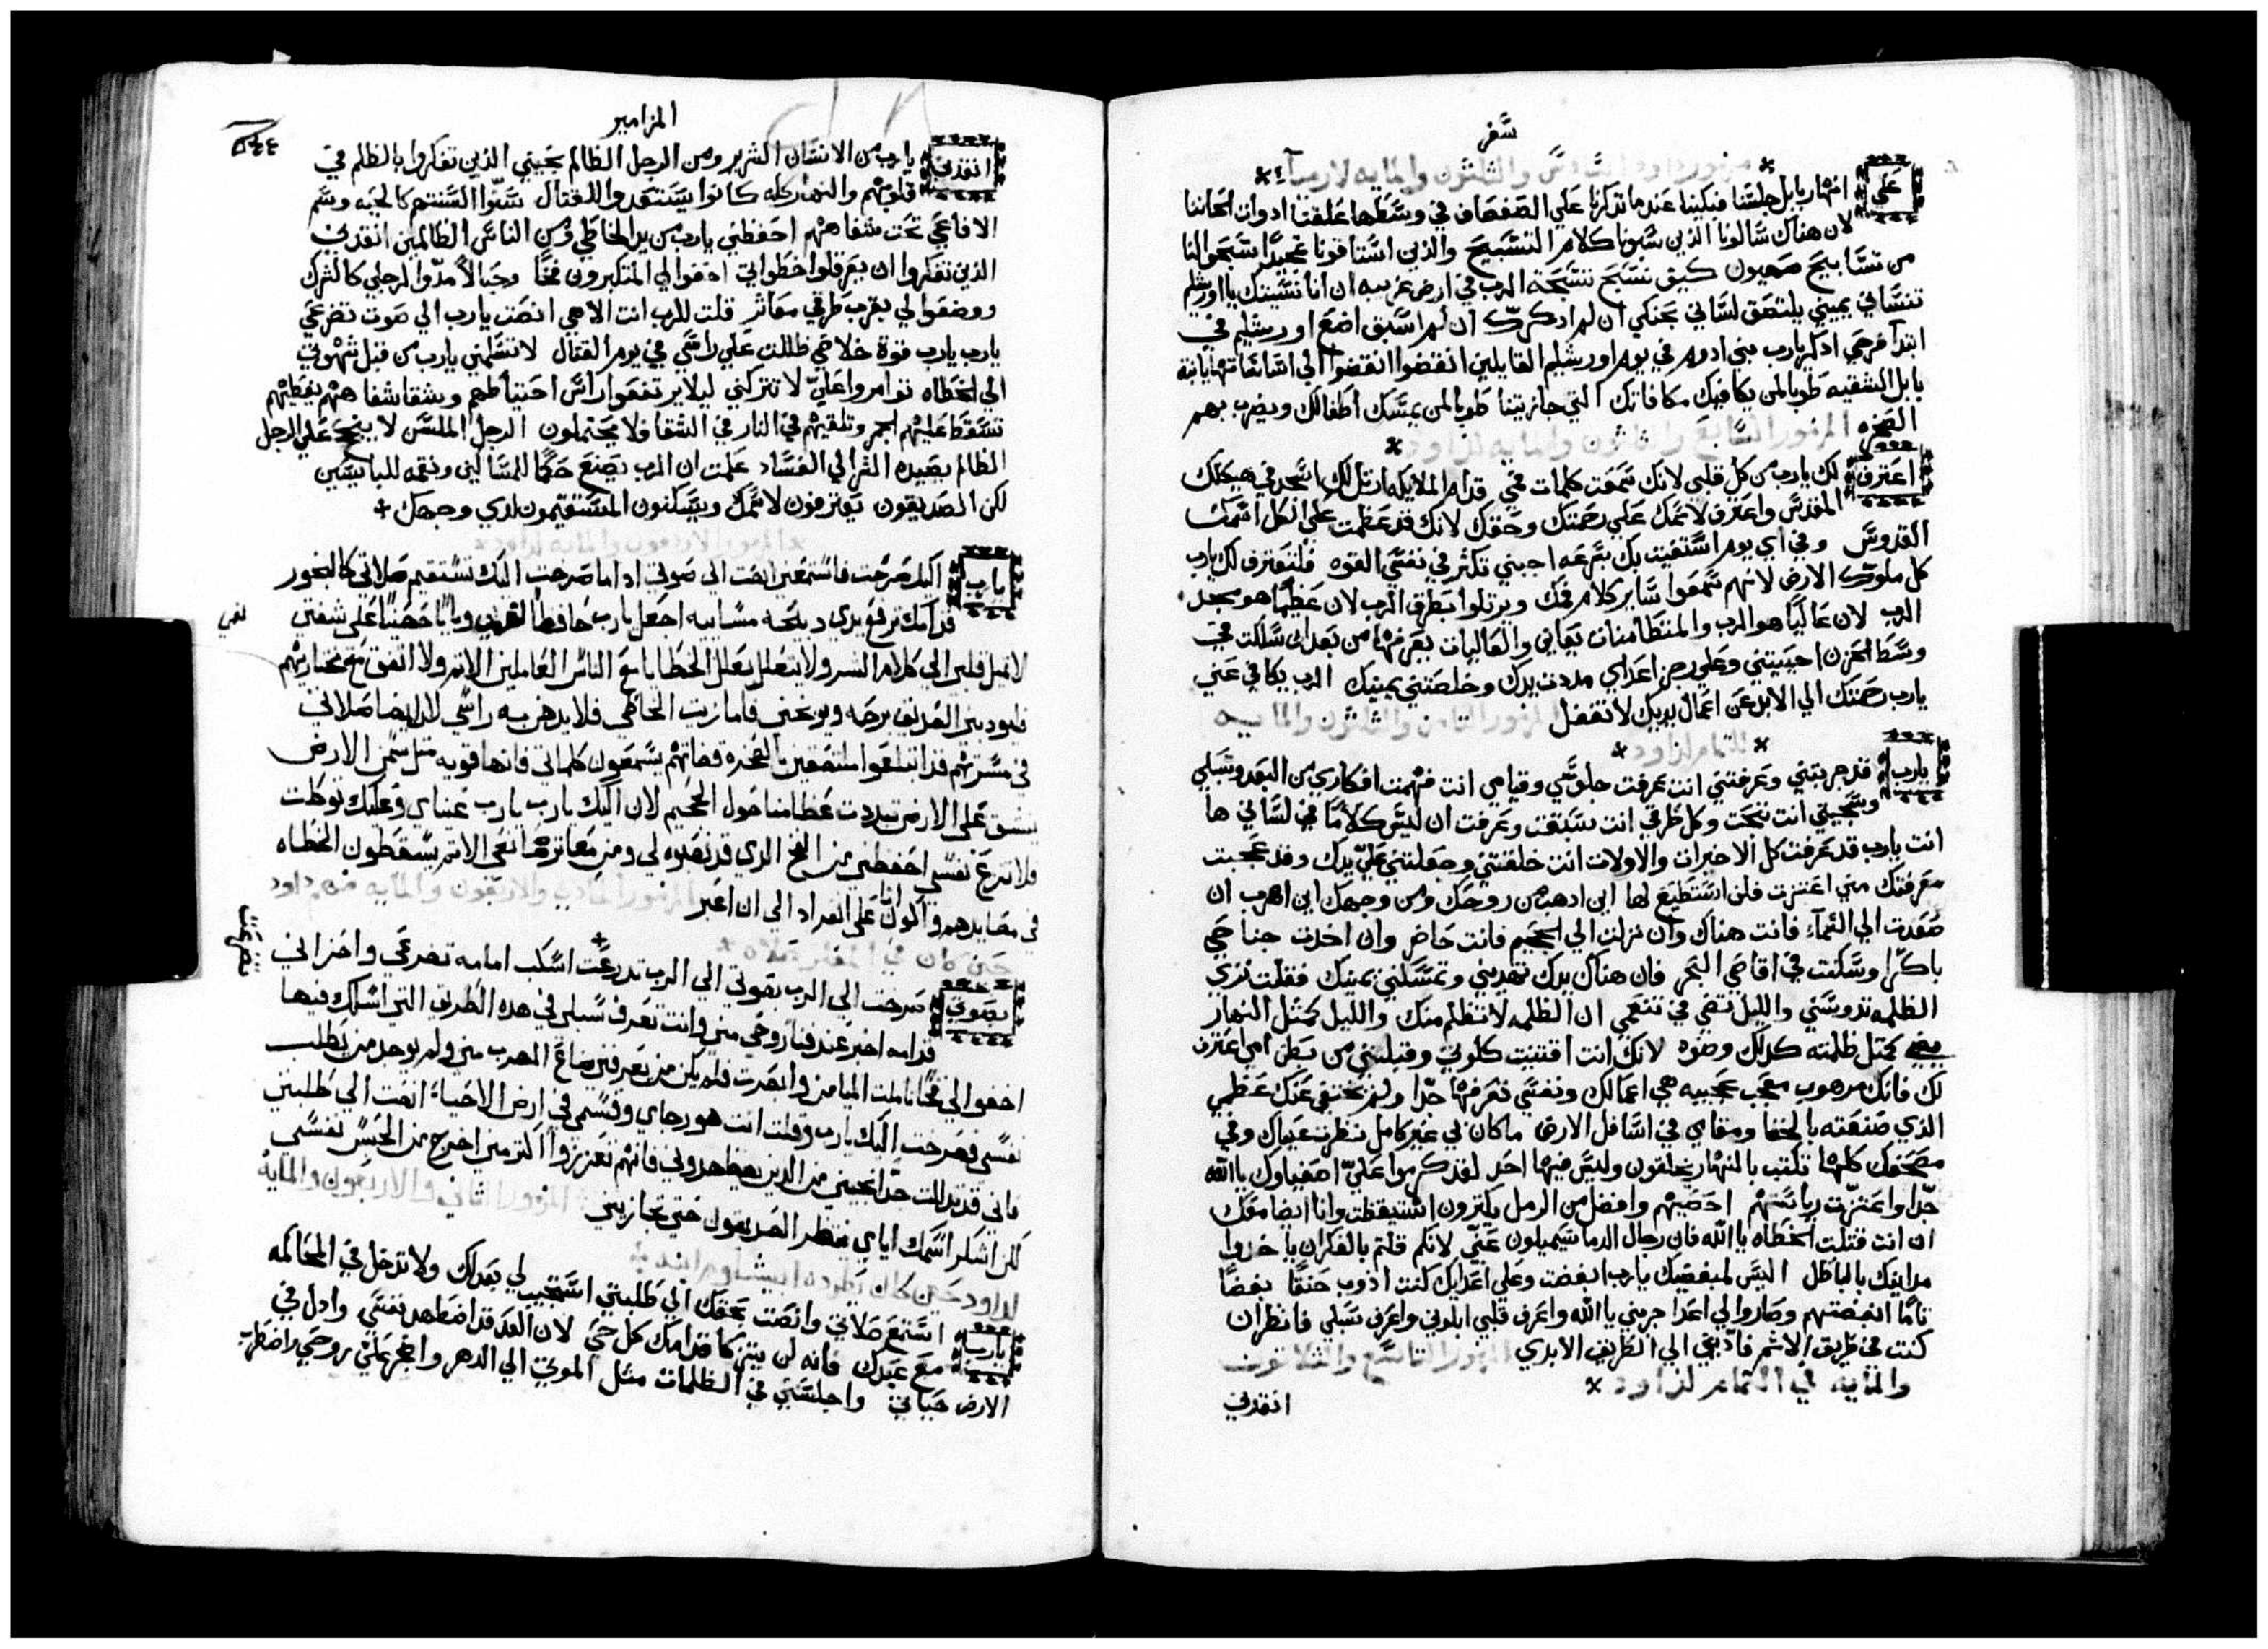 سفر
مزمور داود السادس والثلثون والمايه لارميا
علي انهار بابل جلسنا فبكينا عندما تذكرنا علي الصفصاف في وسطها علقنا ادوات الحاننا
لان هناك سالونا الذين سبونا كلام التسبيح والذين استاقونا تمجيدا سبحوا لنا
من تسابيح صهيون كيف نسبح تسبحة الرب في ارض غريبه ان انا نسيتك يا اورشليم
تنساني يميني يلتصق لساني بحنكي ان لم ادكرك ان لم اسبق اضع اورشليم في
ابتدا فرحي ادكر يارب بني ادوم في يوم اورشليم القايلين انقضوا انقضوا الي اساساتها يا ابنة
بابل الشقيه طوبا لمن يكافيك مكافاتك التي جازيتنا طوبا لمن يمسك اطفالك ويضرب بهم
الصخره المزمور السابع والثلثون والمايه لداود
اعترف لك يارب من كل قلبي لانك سمعت كلمات فمي قدام الملايكه ارتل لك اسجد في هيكلك
المقدس واعترف لاسمك علي رحمتك وحقك لانك قد عظمت علي الكل اسمك
القدوس وفي اي يوم استغيث بك بسرعه اجبني تكثر في نفسي القوه فلتعترف لك يارب
كل ملوك الارض لانهم سمعوا ساير كلام فمك ويرتلوا بطرق الرب لان عظيما هو مجد
الرب لان عاليا هو الرب والمتطامنات يعاين والعاليات يعرفها من بعد ان سلكت في
وسط الحزن احييتني وعلي رجز اعداي مددت يدك وخلصتني يمينك الرب يكافي عني
يارب رحمتك الي الابد عن اعمال يديك لا تغفل المزمور الثامن والثلثون والمايه
للتمام لداود
يارب قد جربتني وعرفتني انت عرفت جلوسي وقيامي انت فهمت افكاري من البعد وسبلي
وسجيتي انت بحثت وكل طرقي انت سبقت وعرفت ان ليس كلاما في لساني ها
انت يارب قد عرفت كل الاخيرات والاولات انت خلقتني وجعلت علي يدك وقد عجبت
معرفتك مني اعتزت فلن استطيع لها اين ادهب من روحك ومن وجهك اين اهرب ان
صعدت الي السماء فانت هناك وان نزلت الي الجحيم فانت حاضر وان اخدت جناحي
باكرا وسكنت في اقاصي البحر فان هناك يدك تهديني وتمسكني يمينك فقلت تري
الظلمه تدوسني والليل تضي في تنعمي ان الظلمه لا تظلم منك والليل كمثل النهار
يضي كمثل ظلمته كدلك وضوه لانك انت اقتنيت كلوتي وقبلتني من بطن امي اعترف
لك فانك مرهوب معجب عجيبه هي اعمالك ونفسي تعرفها جدا ولم يختفي عنك عظمي
الذي صنعته بالخفا ومقامي في اسافل الارض ما كان لي غير كامل نظرت عيناك وفي
مصحفك كلها تكتب بالنهار يخلقون وليس فيها احد لقد كرموا علي اصفياوك يا الله
جدا واعتزت رياستهم احصيهم وافضل من الرمل يكثرون استيقظت وانا ايضا معك
ان انت قتلت الخطاه يا الله فان رجال الدما سيميلون عني لانكم قلتم بالفكر ان ياخدوا
مداينك بالباطل اليس لمبغضيك يارب ابغضت وعلي اعدايك كنت ادوب حنقا بغضا
تاما ابغضتهم وصاروا لي اعدا جربني يا الله واعرف قلبي ابلوني واعرف سبلي فانظر ان
كنت في طريق الاثم فادبني الي الطريق الابدي المزمور التاسع والثلاثون
والمايه في التمام لداود
انقدني
المزامير
٢٤٤
انقدني يارب من الانسان الشرير ومن الرجل الظالم نجيني الذين تفكروا بالظلم في
قلوبهم والنهار كله كانوا يستعدوا للقتال سنوا السنتهم كالحيه وسم
الافاعي تحت شفاههم احفظني يارب من يد الخاطي ومن الناس الظالمين انقدني
الذين تفكروا ان يعرقلوا خطواتي اخفوا لي المتكبرون فخا وحبالا مدوا لرجلي كالشرك
ووضعوا لي بقرب طرقي معاثر قلت للرب انت الاهي انصت يارب الي صوت تضرعي
يارب يارب قوة خلاصي ظللت علي راسي في يوم القتال لا تسلمني يارب من قبل شهوتي
الي الخطاه توامروا علي لا تتركني ليلا يرتفعوا راس احتياطهم وشقا شفاههم يغطيهم
تسقط عليهم الجمر وتلقيهم في النار في الشقا فلا يحتملون الرجل الملسن لا ينجح علي الرجل
الظالم يصيده الشر الي الفساد علمت ان الرب يصنع حكما للمساكين ونقمه للبايسين
لكن الصديقون يعترفون لاسمك ويسكنون المستقيمون لدي وجهك
المزمور الاربعون والمايه لداود
يارب اليك صرخت فاستمعني انصت الي صوتي ادا ما صرخت اليك تستقيم صلاتي كالبخور
قدامك ترفع يدي دبيحه مساييه اجعل يارب حافظا لفمي وبابا حصينا علي شفتي
لا تميل قلبي الي كلام الشر ولا يتعلل بعلل الخطايا مع الناس العاملين الاثم ولا اتفق مع مختاريهم
فليودبني الصديق برحمه ويوبخني فاما زيت الخاطي فلا يدهن به راسي لان ايضا صلاتي
في مسرتهم قد ابتلعوا ملتصقين الصخره قضاتهم يسمعون كلماتي فانها قويه مثل سمن الارض
ينشق علي الارض تبددت عظامنا حول الجحيم لان اليك يارب يارب عيناي وعليك توكلت
فلا تنزع نفسي احفظني من الفخ الدي قد نصبوه لي ومن معاثر صانعي الاثم يسقطون الخطاه
في مصايدهم واكون انا علي انفراد الي ان اعبر المزمور الحادي والاربعون والمايه فهم داود
حين كان في المغاره صلاه
بصوتي صرخت الي الرب بصوتي الي الرب تدرعت اسكب امامه تضرعي واحزاني
قدامه اخبر عند فنا روحي مني وانت تعرف سبلي في هده الطريق التي اسلك فيها
اخفوا لي فخا تاملت الميامن وابصرت فلم يكن من يعرفني ضاع المهرب مني ولم يوجد من يطلب
نفسي فصرخت اليك يارب وقلت انت هو رجاي وقسمي في ارض الاحياء انصت الي طلبتي
فاني قد تدللت جدا نجيني من الدين يضطهدوني فانهم تعززوا اكتر مني اخرج من الحبس نفسي
لكن اشكر اسمك اياي ينتظر الصديقون حتي تجازيني المزمور الثاني والاربعون والمايه
لداود حين كان يطرده ابيشالوم ابنه
يارب استمع صلاتي وانصت بحقك الي طلبتي استجيب لي بعدلك ولا تدخل في المحاكمه
مع عبدك فانه لن يتزكا قدامك كل حي لان العدو قد اضطهد نفسي وادل في
الارض حياتي واجلسني في الظلمات مثل الموتي الي الدهر واضجر علي روحي واضطرب
لفمي
تضرعت